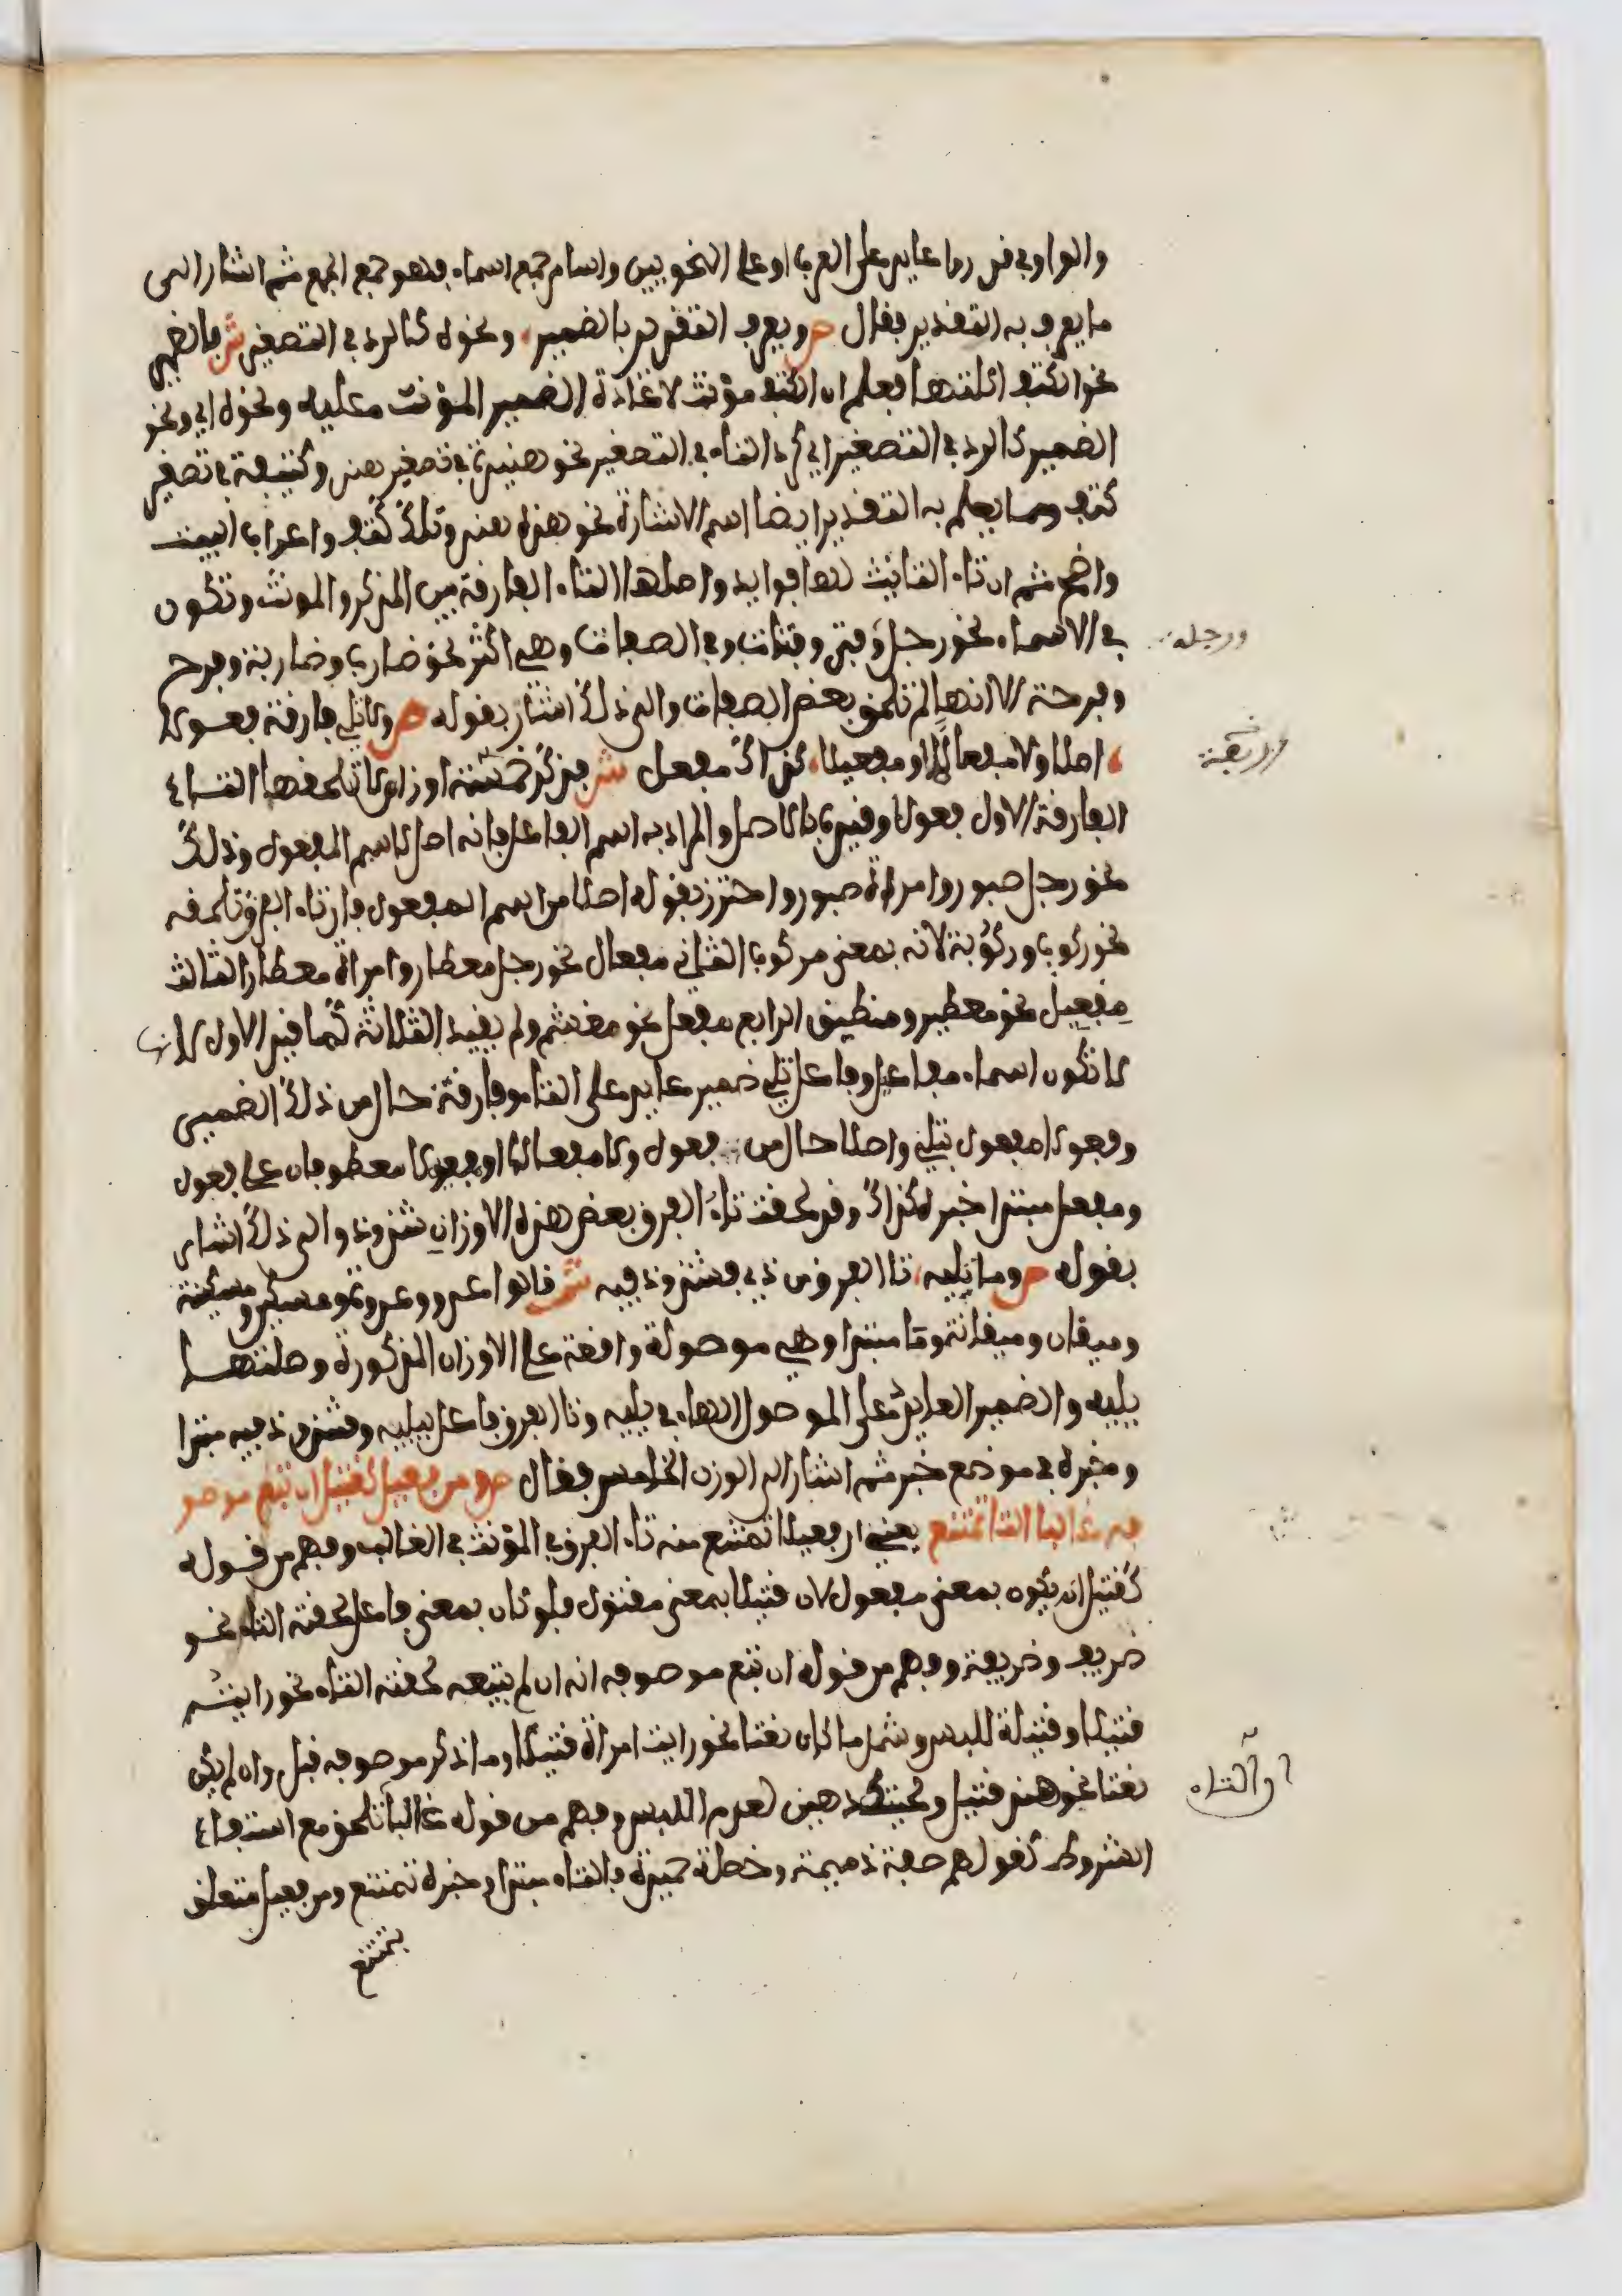 والواو في قدروا عايد على العرب او على النحويين واسام جمع اسماء فهو جمع الجمع ثم اشار الى
ما يعرف به التقدير فقال ص ويعرف التقدير بالضمير، ونحوه كالرد في التصغير ش فالضمير
نحو الكتف اكلتها فعلم ان الكتف مؤنث لاعادة الضمير المؤنث عليه ونحوه اي ونحو
الضمير كالرد في التصغير اي كرد التاء في التصغير نحو هنيدة في تصغير هند وكتيفة في تصغير
كتف ومما يعلم به التقدير ايضا اسم الاشارة نحو هذه هند وتلك كتف واعراب البيت
واضح ثم ان تاء التانيث لها فوايد واصلها التاء الفارقة بين المذكر والمونث وتكون
في الاسماء نحو رجل وفتى وفتات وفي الصفات وهي اكثر نحو ضارب وضاربة وفرح
ورجلة
وفرحة الا انها لم تلحق بعض الصفات والى ذلك اشار بقوله ص ولا تلي فارقة فعولا
، اصلا ولا مفعالا او مفعيلا، كذاك مفعل ش فذكر خمسة اوزان لا تلحقها التاء
الفارقة الاول فعول وقيده بالاصل والمراد به اسم الفاعل فانه اصل لاسم المفعول وذلك
نحو رجل صبور وامراة صبور واحترز بقوله اصلا من اسم المفعول فان تاء الفرق تلحقه
نحو ركوب وركوبة لانه بمعنى مركوب الثاني مفعال نحو رجل معطار وامراة معطار الثالث
مفعيل نحو معطير ومنطيق الرابع مفعل نحو مغشم ولم يقيد الثلاثة كما قيد الاول لانها
لا تكون اسماء مفاعيل وفاعل تلي ضمير عايد على التاء وفارقة حال من ذلك الضمير
وفعولا مفعول بتلي واصلا حال من فعول ولا مفعالا او مفعيلا معطوفان على فعول
ومفعل مبتدا خبره كذاك وقد لحقت تاء الفرق بعض هذه الاوزان شذوذا والى ذلك اشار
بقوله ص وما تليه، تا الفرق من ذي فشذوذ فيه ش قالوا عدو وعدوة ومسكين ومسكينة
وميقان وميقانة وما مبتدا وهي موصولة واقعة على الاوزان المذكورة وصلتها
يليه والضمير العايد على الموصول الهاء في يليه وتا الفرق فاعل بيليه وفشذوذ فيه مبتدا
وخبره في موضع خبر ثم اشار الى الوزن الخامس فقال ص ومن فعيل كقتيل ان تبع موصو
فه غالبا التا تمتنع يعني ان فعيلا تمتنع منه تاء الفرق في المؤنث في الغالب وفهم من قوله
كقتيل ان يكون بمعنى مفعول لان قتيلا بمعنى مقتول فلو كان بمعنى فاعل لحقته التاء نحو
ضريف وضريفة وفهم من قوله ان تبع موصوفه انه ان لم يتبعه لحقته التاء نحو رايت
قتيلا وقتيلة للبس وشمل ما كان نعتا نحو رايت امراة قتيلا وما ذكر موصوفه قبل وان لم يكن
نعتا نحو هند قتيل دهين لعدم اللبس وفهم من قوله غالبا تلحق مع استيفاء
ان التاء
الشروط كقولهم صفة ذميمة وخصلة حميدة فالتاء مبتدا وخبره تمتنع ومن فعيل متعلق
بتمتنع